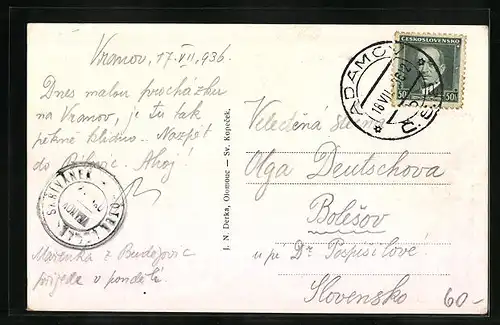 Vranov, 17.VII.936.
Dnes malou procházku
na Vranov, je tu tak
pěkně klidno. Nazpět
do Bílovic. Ahoj!
Mařenka z Budějovic
přijede v pondělí.
SKŘIVÁNEK
J. N. Derka, Olomouc — Sv. Kopeček.
ČESKOSLOVENSKO
50 50
ADAMOV
16.VII.
Velectěná slečna
Olga Deutschova
Bolešov
u p. Dr Pospíšilové
Slovensko
60-